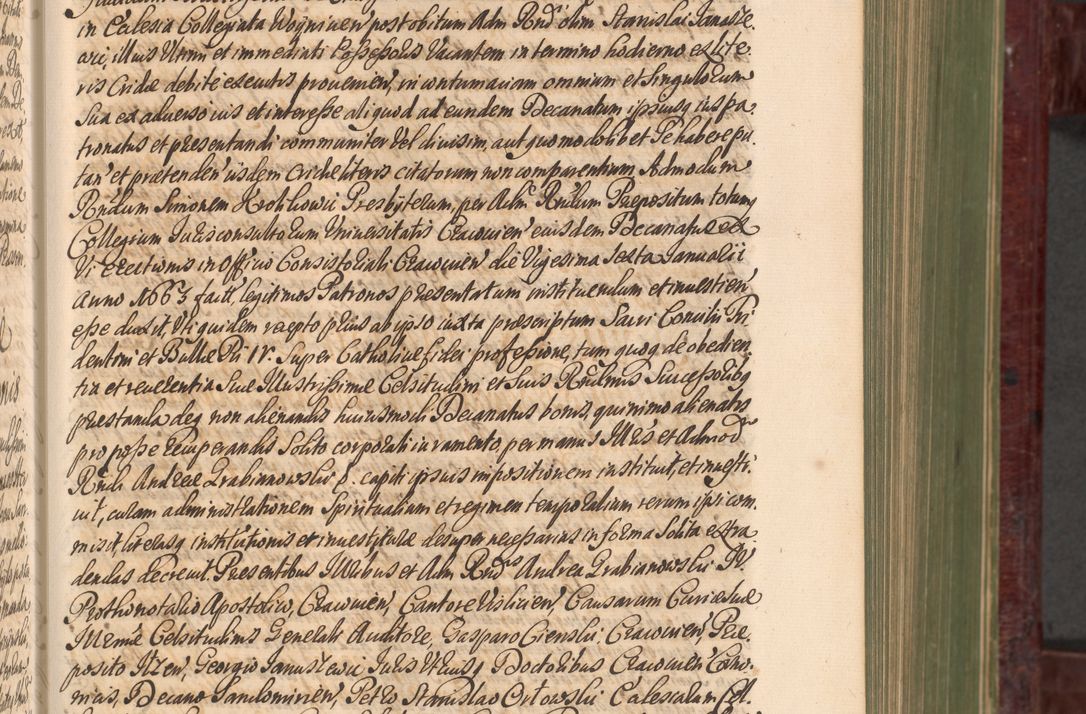 in Ecclesia Collegiata Woynicien post obitum Adm Rnd olim Stanislai Janusze
wic, illius Ultimi et immediati Possessoris Vacantem in termino hodierno ex lite
ris Cridæ debite executis provenien, in contumaciam omnium et Singulorum
Sua ex adverso ius et interesse aliquod ad eundem Decanatum ipsiusq ius pa
tronatus et præsentandi communiter Vel divisim, aut quomodolibet Se habere pu
tan et prætenden iisdem Cridæ literis citatorum non comparentium Admodum
Rndum Simonem Presbyterum, per Adm Rndum Præpositum totumq
Collegium Jurisconsultorum Universitatis Cracovien eiusdem Decanatus ex
Vi erectionis in Officio Consistoriali Cracovien die Vigesima Sexta Januarii
Anno 1663 fact, legitimos Patronos præsentatum instituendum et investien
esse duxit, Uti quidem recepto prius ab ipso iuxta præscriptum Sacri Concilii Tri
dentini et Bullæ Pii IV. Super Catholicæ fidei professione, tum quoq de obedien
tia et reverentia Suæ Illustrissimæ Celsitudini et Suis Rndmis Successoribq
præstanda deq non alienandis huiusmodi Decanatus bonis, quinimo alienatis
pro posse recuperandis Solito corporali iuramento, per manus Illris et Admod
Rndi Andreæ Grabianowski p. capiti ipsius impositionem instituit, et investi
vit, curam administrationem Spiritualium et regimen temporalium rerum ipsi com
misit, literasq institutionis et investituræ desuper necessarias in forma Solita extra
dendas decrevit. Præsentibus Illribus et Adm Rnds Andrea Grabianowski IV.
Prothonotario Apostolico, Cracovien, Cantore Vislicien, Causarum Curiæ Suæ
Illrmæ Celsitudinis Generali Auditore, Gasparo Cienski Cracovien, Præ
posito Georgio Januszewic Juris Utriusq Doctoribus Cracovien Cano
nicis, Decano Sandomirien, Petro Stanislao Orłowski